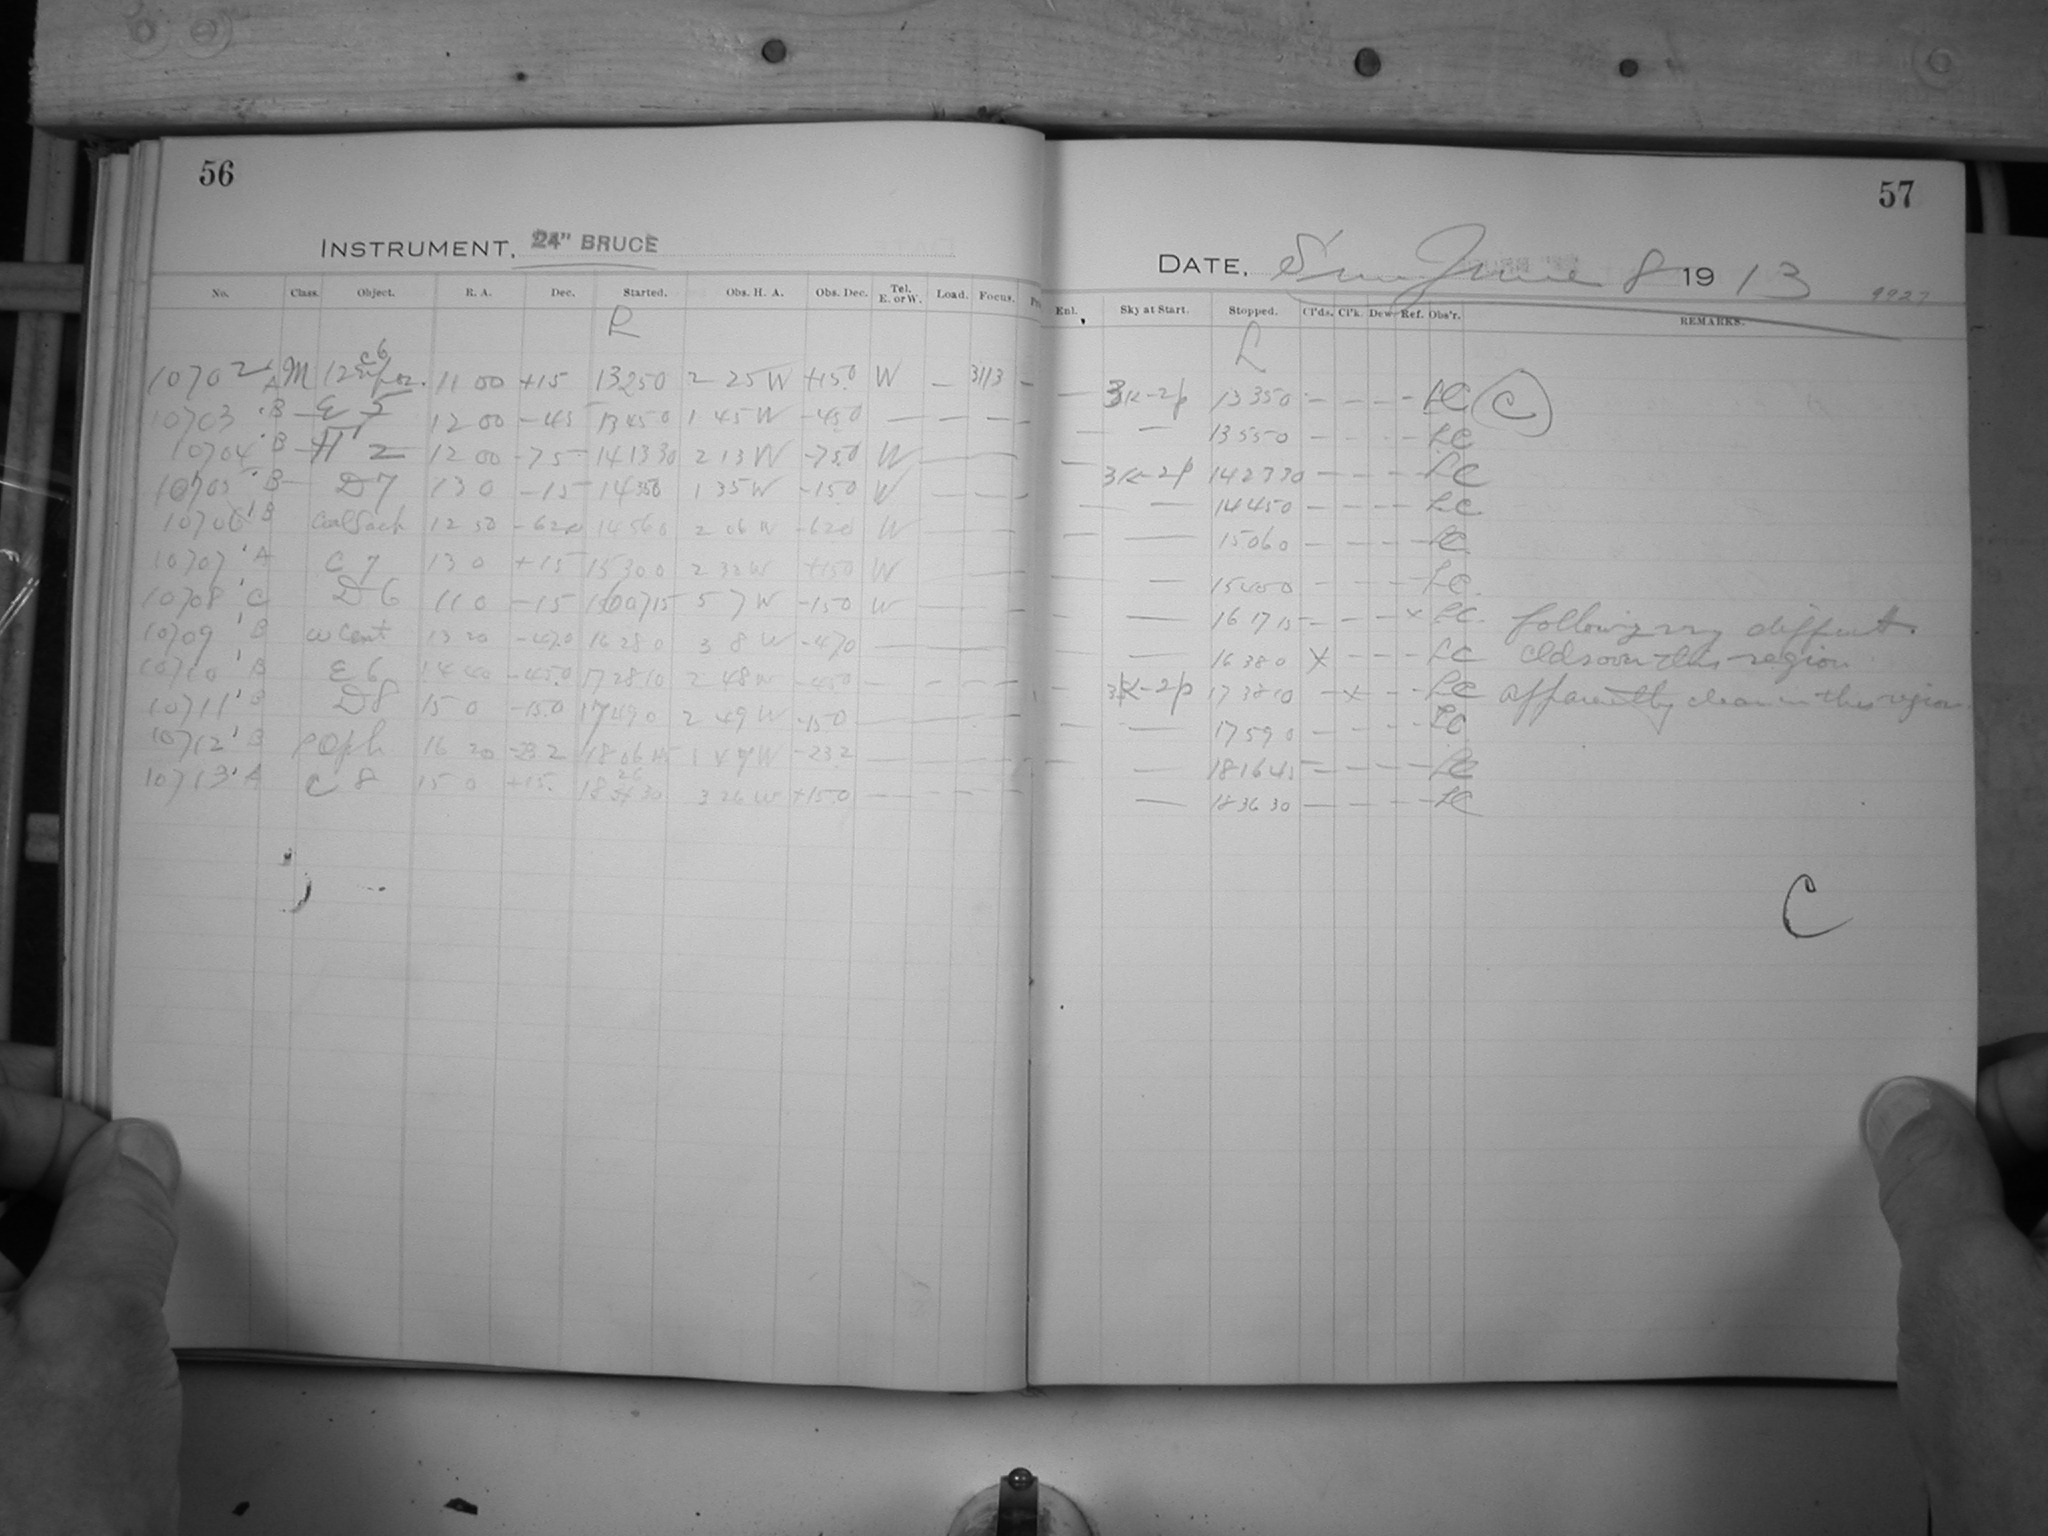 56
INSTRUMENT, 24" BRUCE
No. Class. Object. R. A. Dec. Started. Obs. H. A. Obs. Dec. Tel. E. or W. Load. Focus.
R
C6
10702 A M 12 11 00 +15 13250 2 25 W +15.0 W — 3113 —
10703 B E 5 12 00 -45 13450 1 45 W -45.0 — — —
10704 B H 2 12 00 -75 141330 2 13 W -75.0 W — —
10705 B D7 13 0 -15 14350 1 35 W -15.0 W — — —
10706 B Coalsack 12 50 -62.0 14560 2 06 W -62.0 W
10707 A C 7 13 0 +15 15300 2 30 W +15.0 W
10708 C D6 11 0 -15 160715 5 7 W -15.0 W
10709 B ω Cent 13 20 -47.0 16280 3 8 W -47.0
10710 B E 6 14 40 -45.0 172810 2 48 W -45.0
10711 B D8 15 0 -15.0 17490 2 49 W -15.0
10712 B ρ Oph 16 20 -23.2 180645 1 47 W -23.2
10713 A C 8 15 0 +15. 18 26 30 3 26 W +15.0
57
DATE, Sun June 8 19 13
9927
Enl. Sky at Start. Stopped. Cl'ds. Cl'k. Dew Ref. Obs'r. REMARKS.
L
— 3K-2p 13350 — — — — LC C
— — 13550 — — — — LC
— 3K-2p 142330 — — — — LC
— — 14450 — — — — LC
— — 15060 — — — — LC
— 15400 — — — — LC
— — 161715 — — — x LC following very difficult.
— 16380 X — — — LC Clds over this region
— 3K-2p 173810 — x — — LC apparently clear in this region
— — 17590 — — — — LC
— — 181645 — — — — LC
— 183630 — — — — LC
C